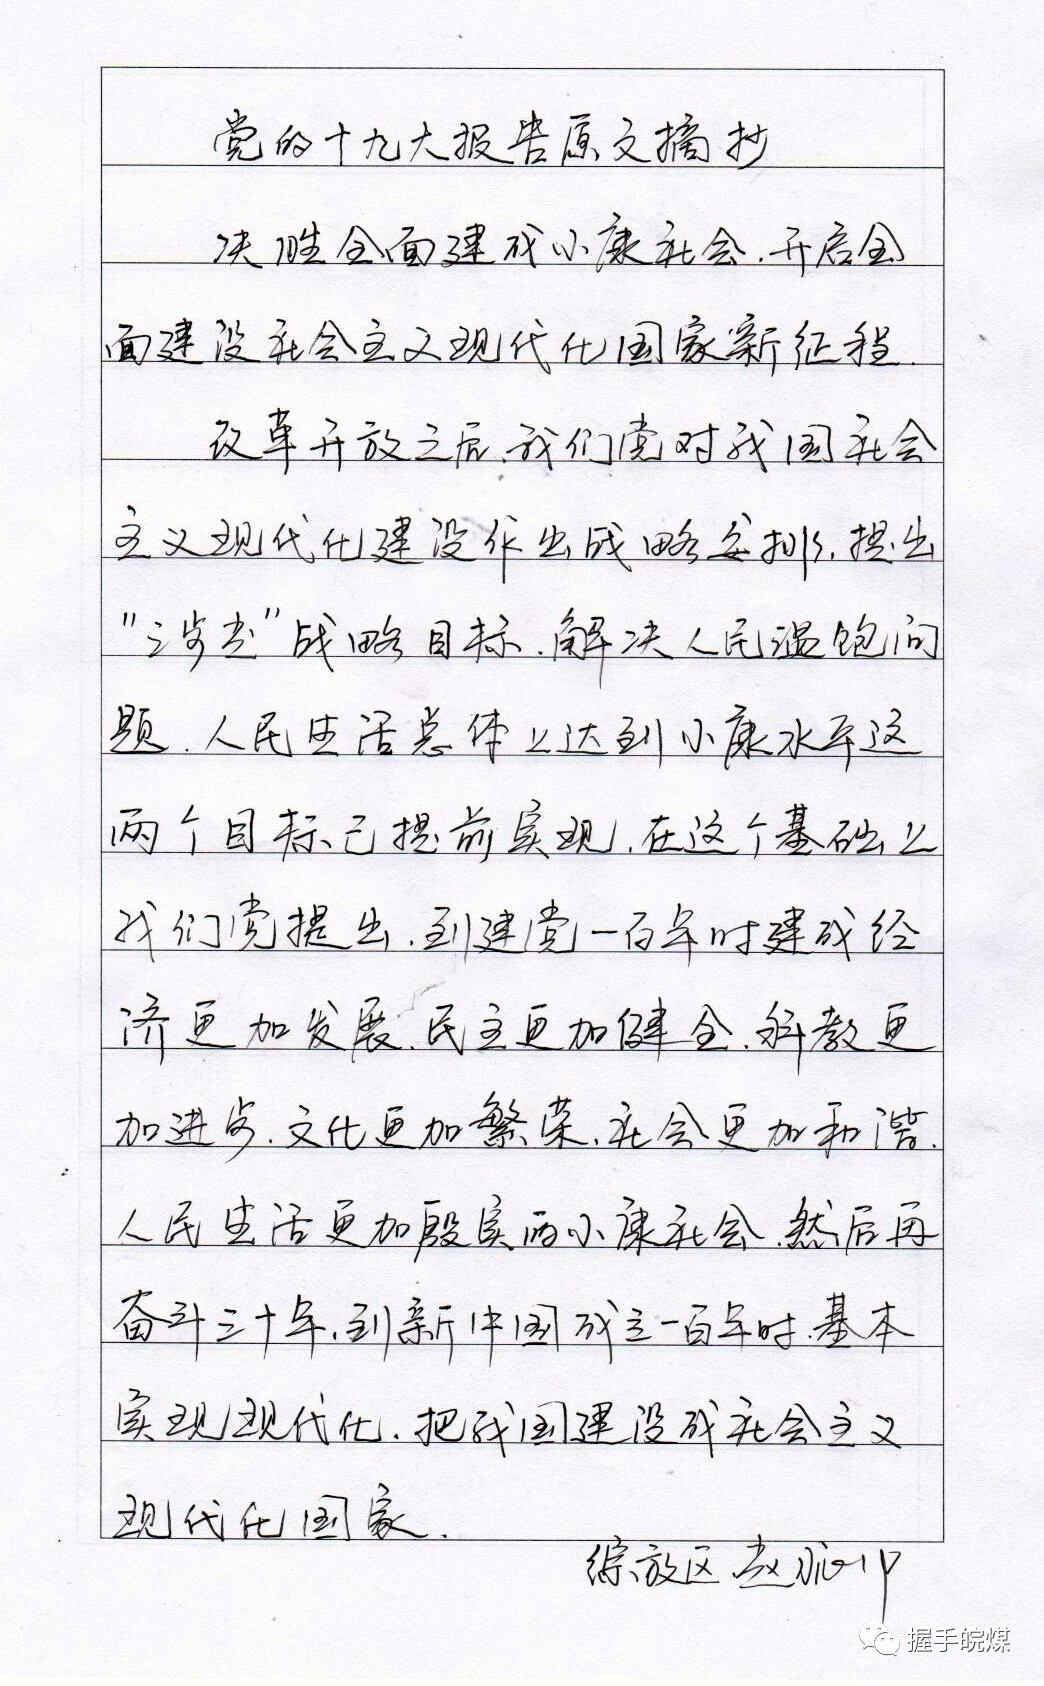 党的十九大报告原文摘抄
决胜全面建成小康社会.开启全
面建设社会主义现代化国家新征程.
改革开放之后,我们党对我国社会
主义现代化建设作出战略安排,提出
"三步走"战略目标.解决人民温饱问
题.人民生活总体上达到小康水平这
两个目标已提前实现.在这个基础上
我们党提出.到建党一百年时建成经
济更加发展.民主更加健全.科教更
加进步.文化更加繁荣.社会更加和谐.
人民生活更加殷实的小康社会.然后再
奋斗三十年,到新中国成立一百年时.基本
实现现代化.把我国建设成社会主义
现代化国家.
综放区 赵
握手皖煤